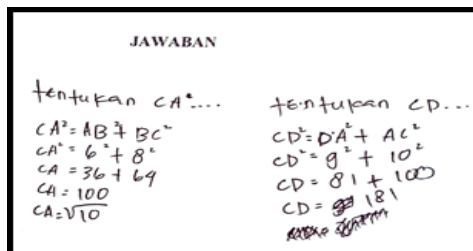 JAWABAN
tentukan CA²....
CA² = AB² + BC²
CA² = 6² + 8²
CA = 36 + 64
CA = 100
CA = √10
tentukan CD...
CD² = DA² + AC²
CD² = 9² + 10²
CD = 81 + 100
CD = 181